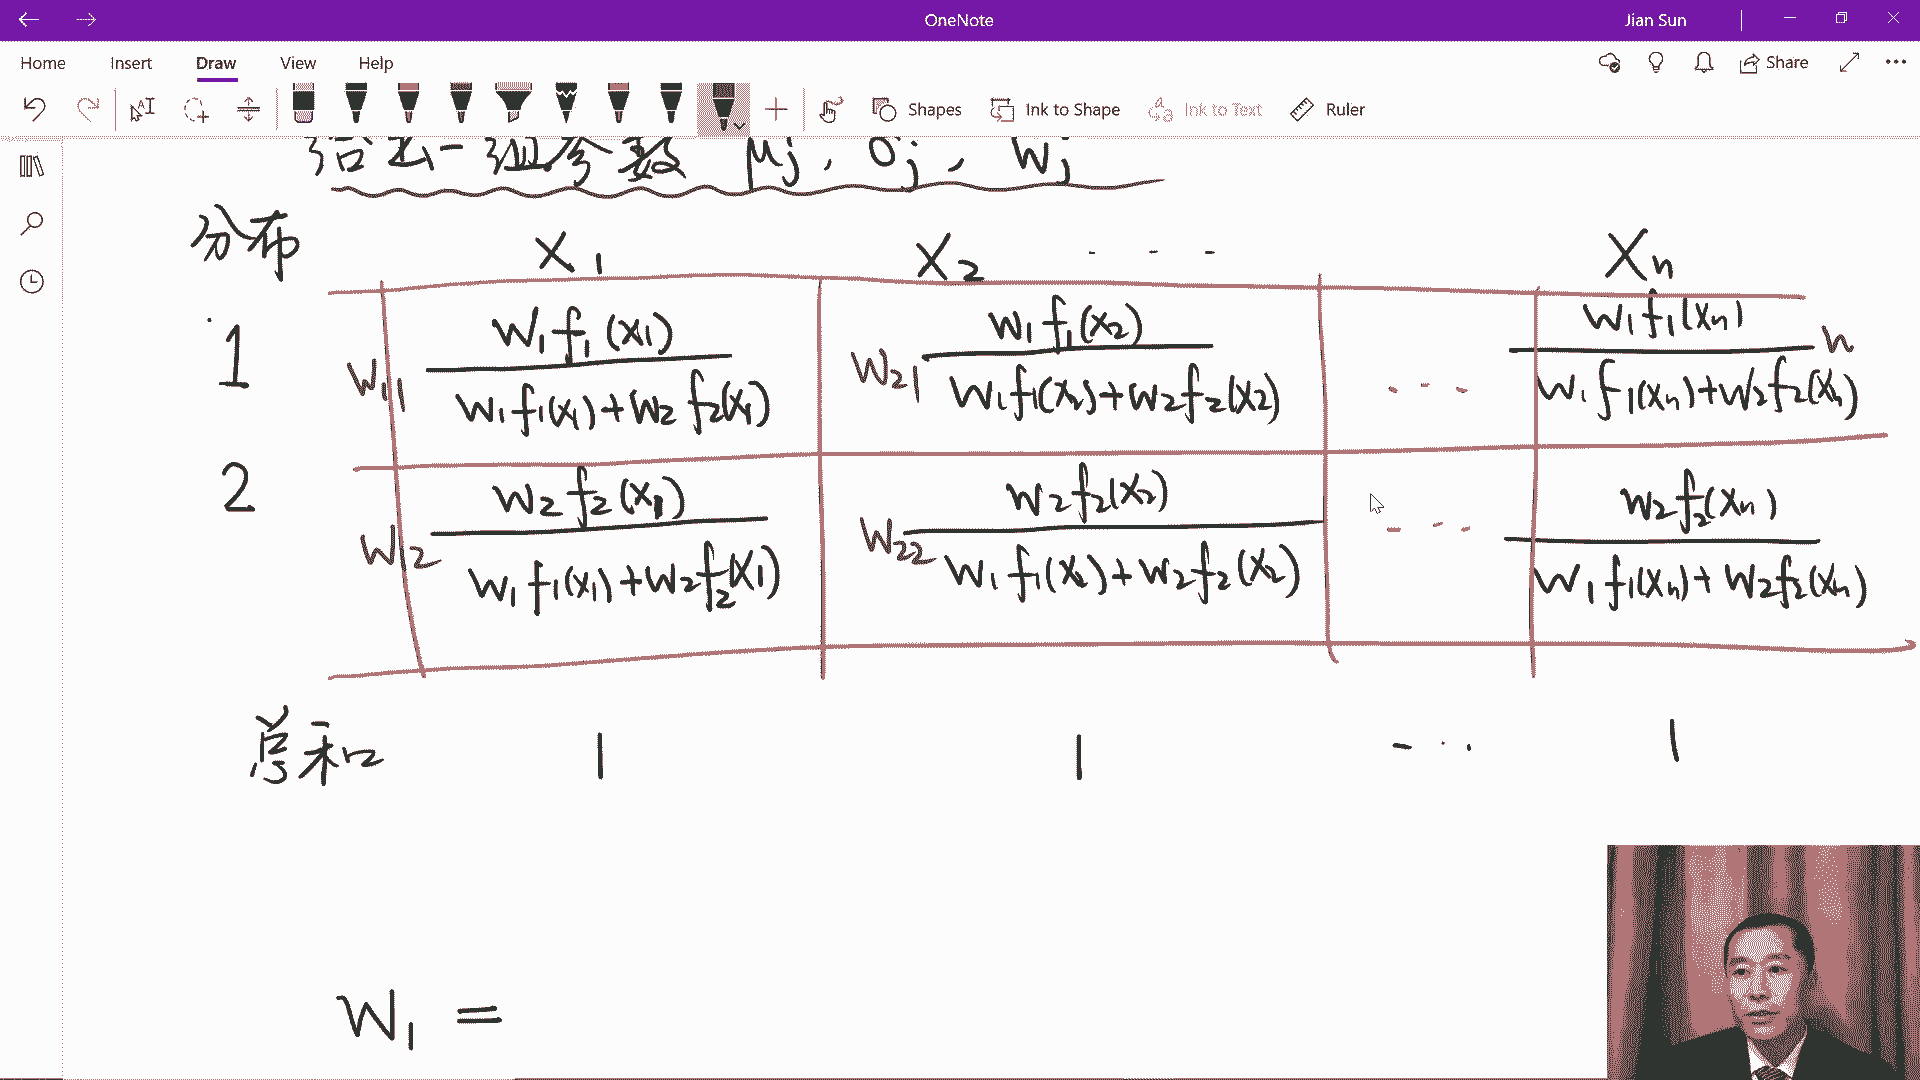 OneNote
Jian Sun
Home Insert Draw View Help
Share
Shapes Ink to Shape Ink to Text Ruler
给出一组参数 μj , σj , Wj
分布 X1 X2 - - - Xn
1 W11 W1f1(X1) / W1f1(X1)+W2f2(X1) W21 W1f1(X2) / W1f1(X2)+W2f2(X2) ... W1f1(Xn) / W1f1(Xn)+W2f2(Xn) n
2 W12 W2f2(X1) / W1f1(X1)+W2f2(X1) W22 W2f2(X2) / W1f1(X2)+W2f2(X2) ... W2f2(Xn) / W1f1(Xn)+W2f2(Xn)
总和 1 1 ... 1
W1 =